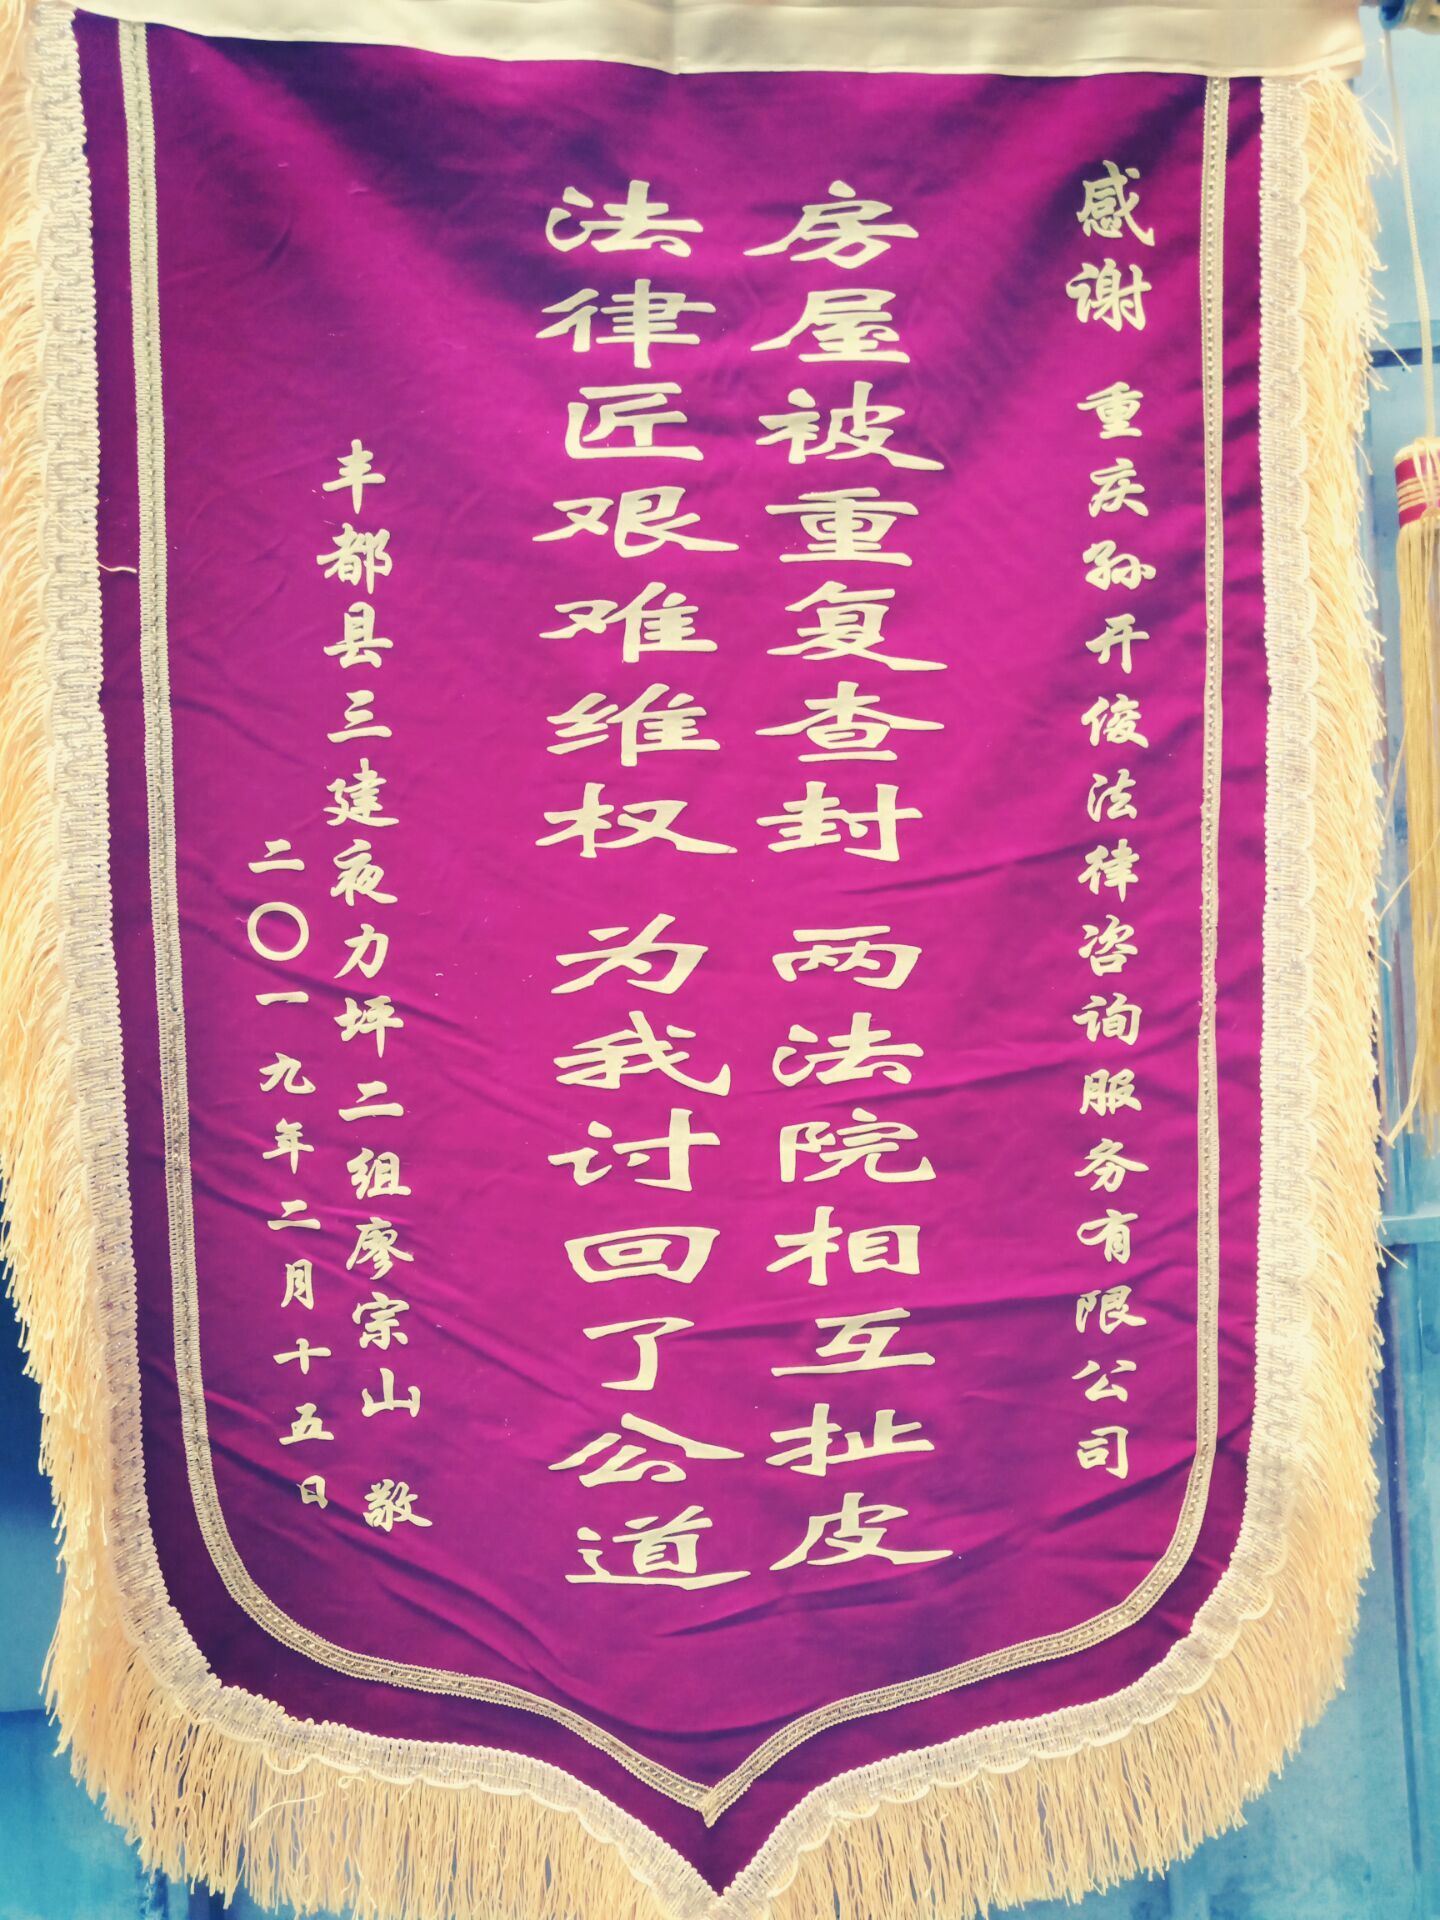 感谢 重庆孙开俊法律咨询服务有限公司
房屋被重复查封 两法院相互扯皮
法律匠艰难维权 为我讨回了公道
丰都县三建夜力坪二组廖宗山 敬
二〇一九年二月十五日